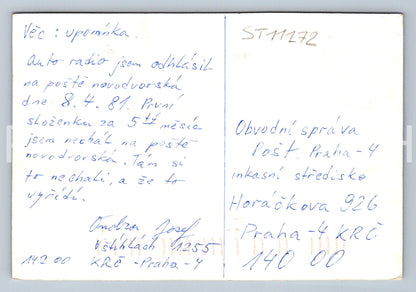 Věc : upomínka.
Auto radio jsem odhlásil
na poště novodvorská
dne 8.4.81. První
složenku za 5tý měsíc
jsem nechal na poště
novodvorská. Tam si
to nechali, a že to
vyřídí.
Ondra Josef
Vštíhlách 1255
142 00 KRČ - Praha - 4
ST 11172
Obvodní správa
Pošt. Praha - 4
inkasní středisko
Horáčkova 926
Praha - 4 KRČ
140 00